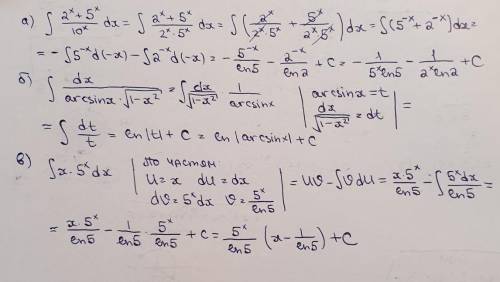 а) ∫ (2^x + 5^x)/10^x dx = ∫ (2^x + 5^x)/(2^x · 5^x) dx = ∫ (2^x/(2^x · 5^x) + 5^x/(2^x · 5^x)) dx = ∫ (5^-x + 2^-x) dx =
= - ∫ 5^-x d(-x) - ∫ 2^-x d(-x) = - 5^-x/ln5 - 2^-x/ln2 + C = - 1/(5^x ln5) - 1/(2^x ln2) + C
б) ∫ dx/(arcsinx · √(1-x²)) = ∫ dx/√(1-x²) · 1/arcsinx | arcsinx = t dx/√(1-x²) = dt | =
= ∫ dt/t = ln|t| + C = ln|arcsinx| + C
в) ∫ x · 5^x dx | по частям: u = x du = dx dv = 5^x dx v = 5^x/ln5 | = uv - ∫ v du = x · 5^x/ln5 - ∫ 5^x dx/ln5 =
= x · 5^x/ln5 - 1/ln5 · 5^x/ln5 + C = 5^x/ln5 (x - 1/ln5) + C